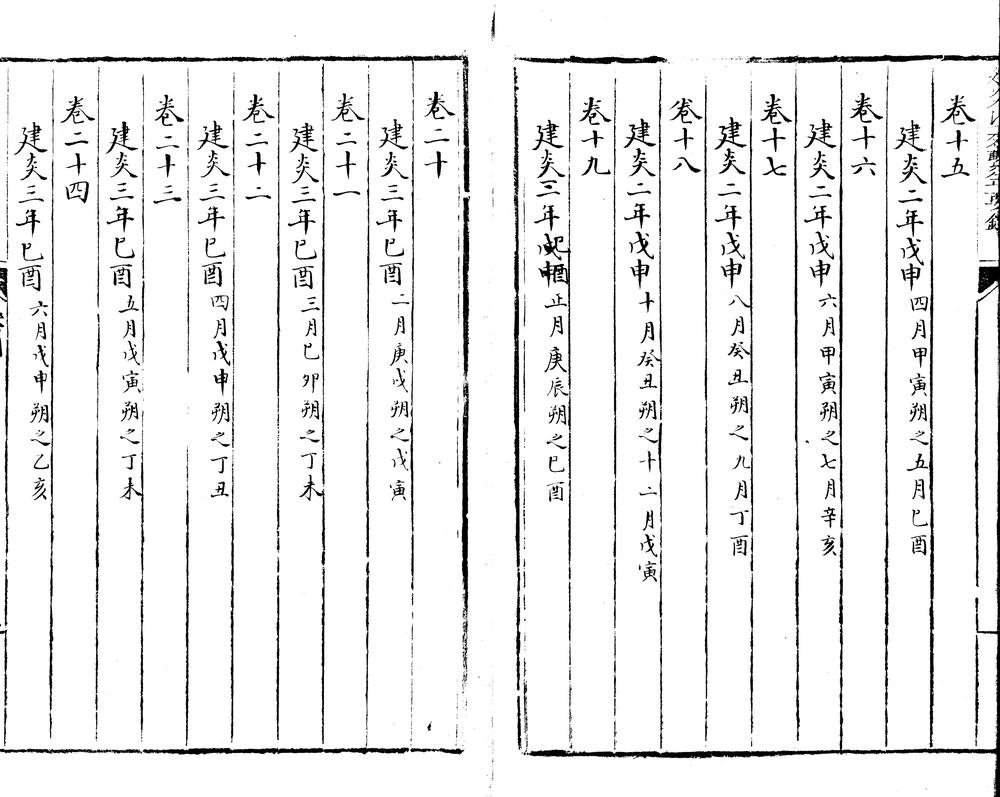 卷十五
建炎二年戊申四月甲寅朔之五月巳酉
卷十六
建炎二年戊申六月甲寅朔之七月辛亥
卷十七
建炎二年戊申八月癸丑朔之九月丁酉
卷十八
建炎二年戊申十月癸丑朔之十二月戊寅
卷十九
建炎三年巳酉正月庚辰朔之巳酉
卷二十
建炎三年巳酉二月庚戌朔之戊寅
卷二十一
建炎三年巳酉三月巳卯朔之丁未
卷二十二
建炎三年巳酉四月戊申朔之丁丑
卷二十三
建炎三年巳酉五月戊寅朔之丁未
卷二十四
建炎三年巳酉六月戊申朔之乙亥